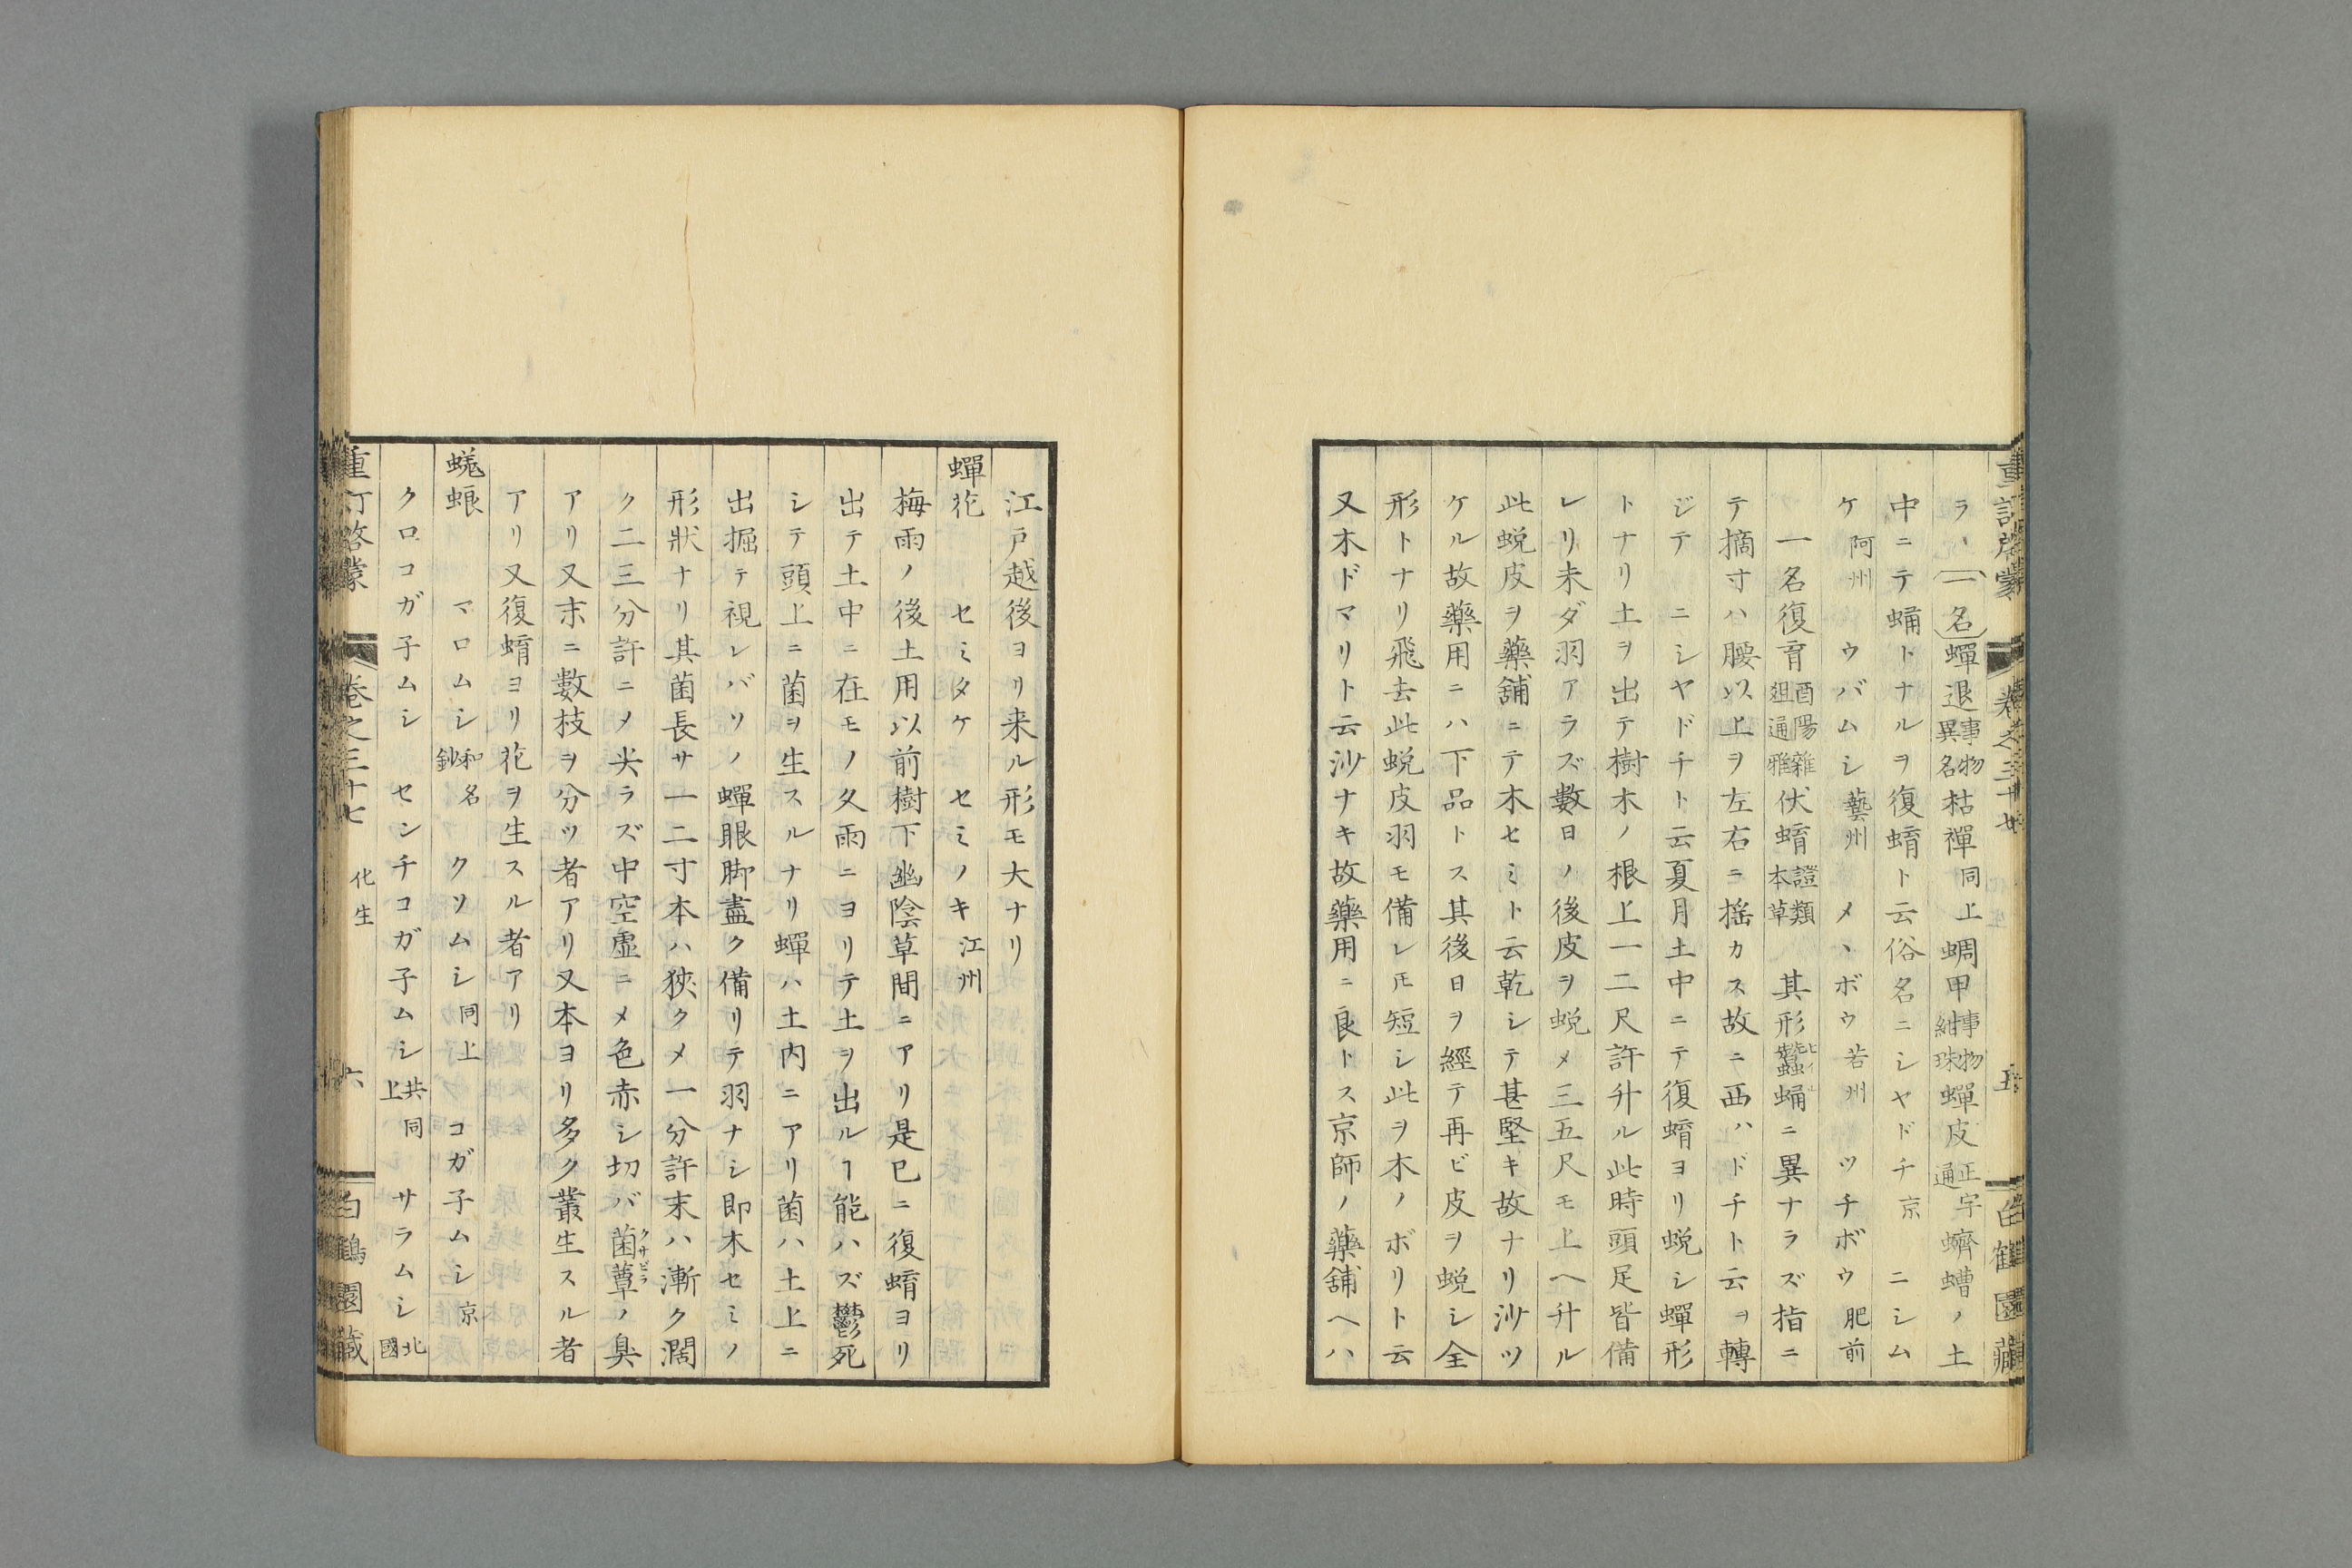 ラヽ〔一名〕蟬退事物異名枯禪同上蜩甲事物紺珠蟬皮正字通蠐螬ノ土
中ニテ蛹トナルヲ復蜟ト云俗名ニシヤドチ京ニシム
ケ阿州ウバムシ藝州メヽボウ若州ツチボウ肥前
一名復育酉陽雜俎通雅伏蜟證類本草其形蠶ヒイル蛹ニ異ナラズ指ニ
テ摘寸ハ腰以上ヲ左右ニ揺カス故ニ西ハドチト云ヲ轉
ジテニシヤドチト云夏月土中ニテ復蜟ヨリ蜕シ蟬形
トナリ土ヲ出テ樹木ノ根上一二尺許升ル此時頭足皆備
レリ未ダ羽アラズ數日ノ後皮ヲ蜕メ三五尺モ上ヘ升ル
此蜕皮ヲ藥舗ニテ木セミト云乾シテ甚堅キ故ナリ沙ツ
ケル故藥用ニハ下品トス其後日ヲ經テ再ビ皮ヲ蜕シ全
形トナリ飛去此蜕皮羽モ備レ𪜈短シ此ヲ木ノボリト云
又木ドマリト云沙ナキ故藥用ニ良トス京師ノ藥舗ヘハ
江戸越後ヨリ来ル形モ大ナリ
蟬花 セミタケ セミノキ江州
梅雨ノ後土用以前樹下幽陰草間ニアリ是已ニ復蜟ヨリ
出テ土中ニ在モノ久雨ニヨリテ土ヲ出ルヿ能ハズ鬱死
シテ頭上ニ菌ヲ生スルナリ蟬ハ土内ニアリ菌ハ土上ニ
出掘テ視レバソノ蟬眼脚盡ク備リテ羽ナシ即木セミノ
形狀ナリ其菌長サ一二寸本ハ狹クメ一分許末ハ漸ク濶
ク二三分許ニメ尖ラズ中空虚ニメ色赤シ切バ菌蕈クサビラノ臭
アリ又末ニ數枝ヲ分ツ者アリ又本ヨリ多ク叢生スル者
アリ又復蜟ヨリ花ヲ生スル者アリ
蜣蜋 マロムシ和名鈔 クソムシ同上 コガ子ムシ京
クロコガ子ムシ センチコガ子ムシ共同上 サラムシ北國
重訂啓蒙 卷之三十七 化生 六 白鶴園藏